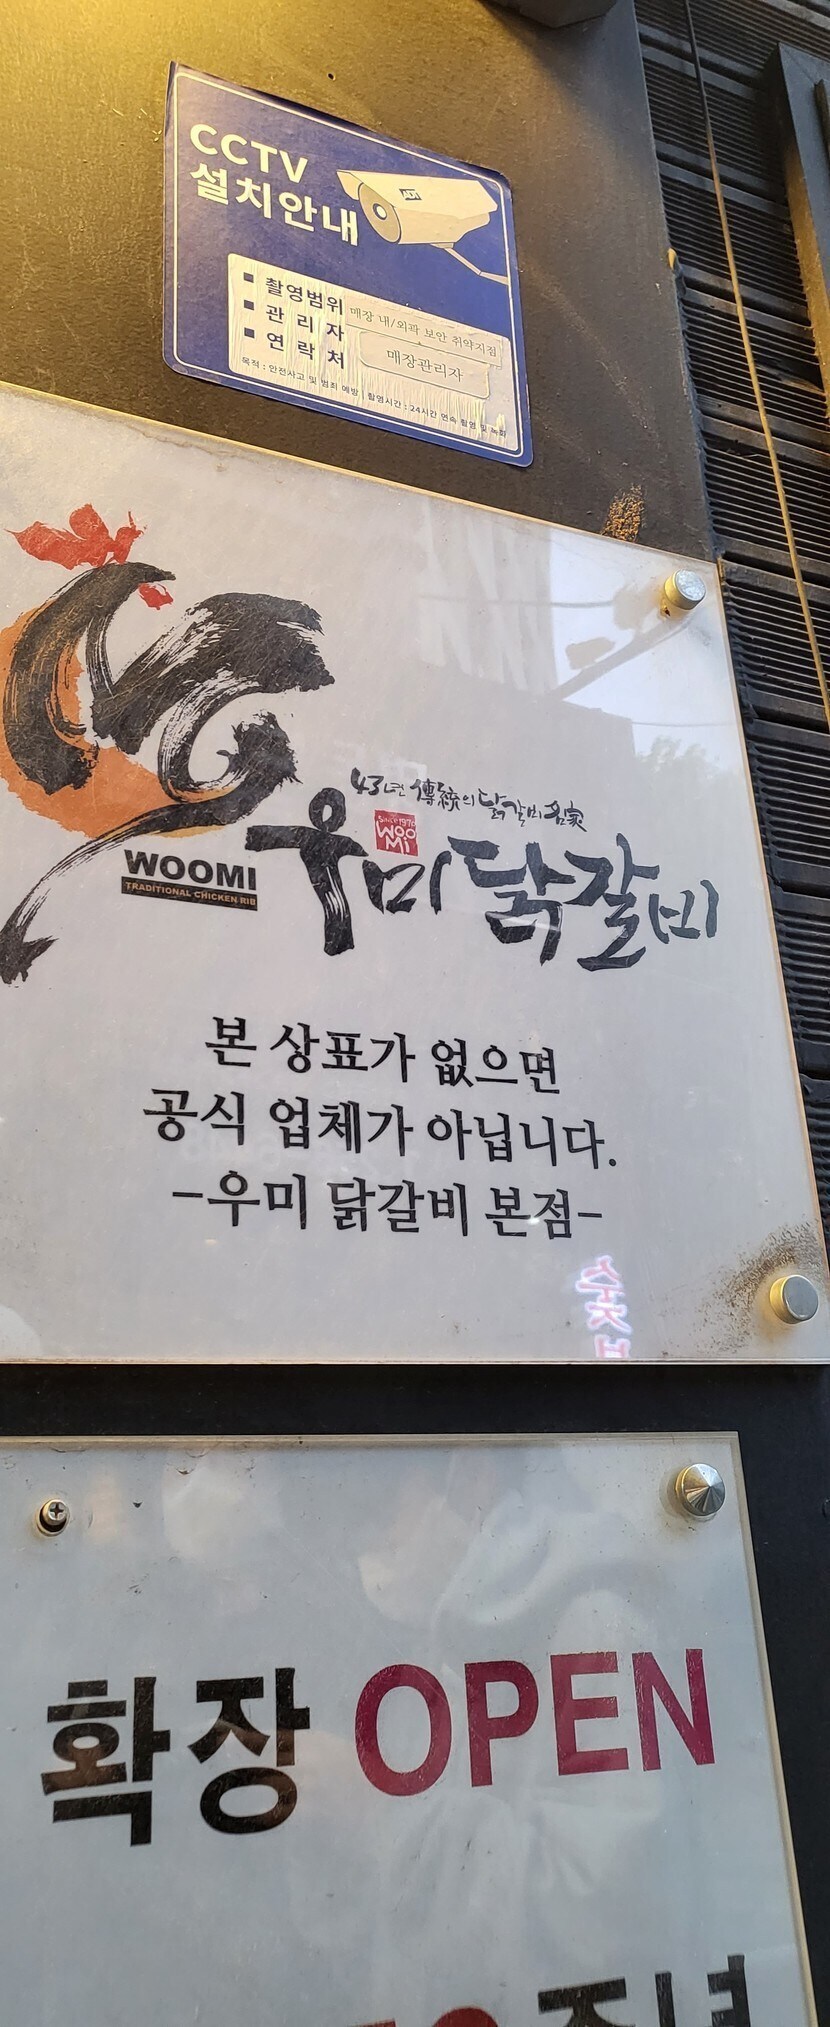 CCTV
설치안내
ADT
■ 촬영범위 매장 내/외곽 보안 취약지점
■ 관 리 자
■ 연 락 처 매장관리자
목적 : 안전사고 및 범죄 예방 촬영시간 : 24시간 연속 촬영 및 녹화
43년 傳統의 닭갈비 名家
SINCE 1970
WOO
Mi
우미닭갈비
WOOMI
TRADITIONAL CHICKEN RIB
본 상표가 없으면
공식 업체가 아닙니다.
-우미 닭갈비 본점-
확장 OPEN
주년